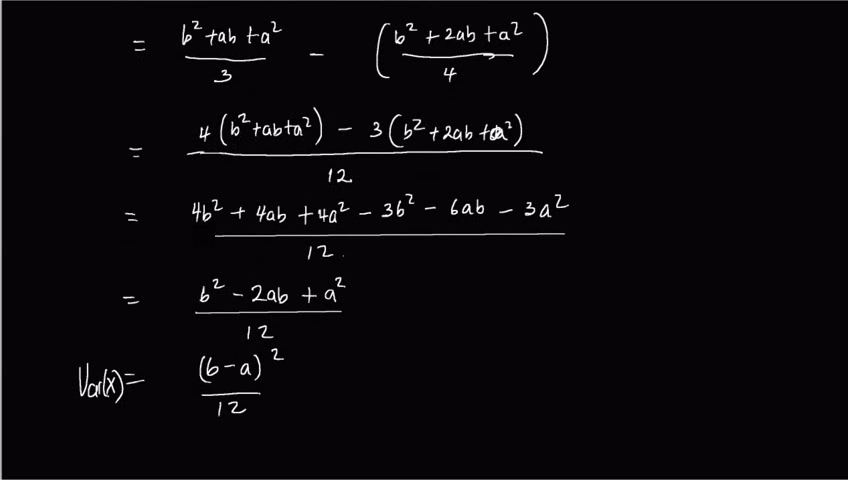 = (b² + ab + a²)/3 − ((b² + 2ab + a²)/4)
= (4(b² + ab + a²) − 3(b² + 2ab + a²))/12
= (4b² + 4ab + 4a² − 3b² − 6ab − 3a²)/12
= (b² − 2ab + a²)/12
Var(x) = (b − a)²/12